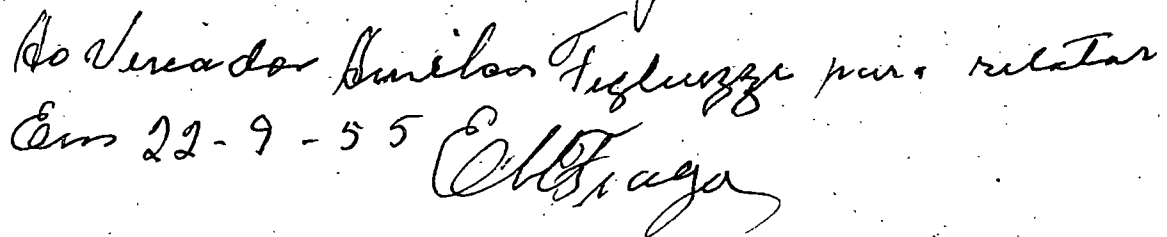 Ao Vereador Amilcar Figliuzzi para relatar
Em 22-9-55 EMFraga